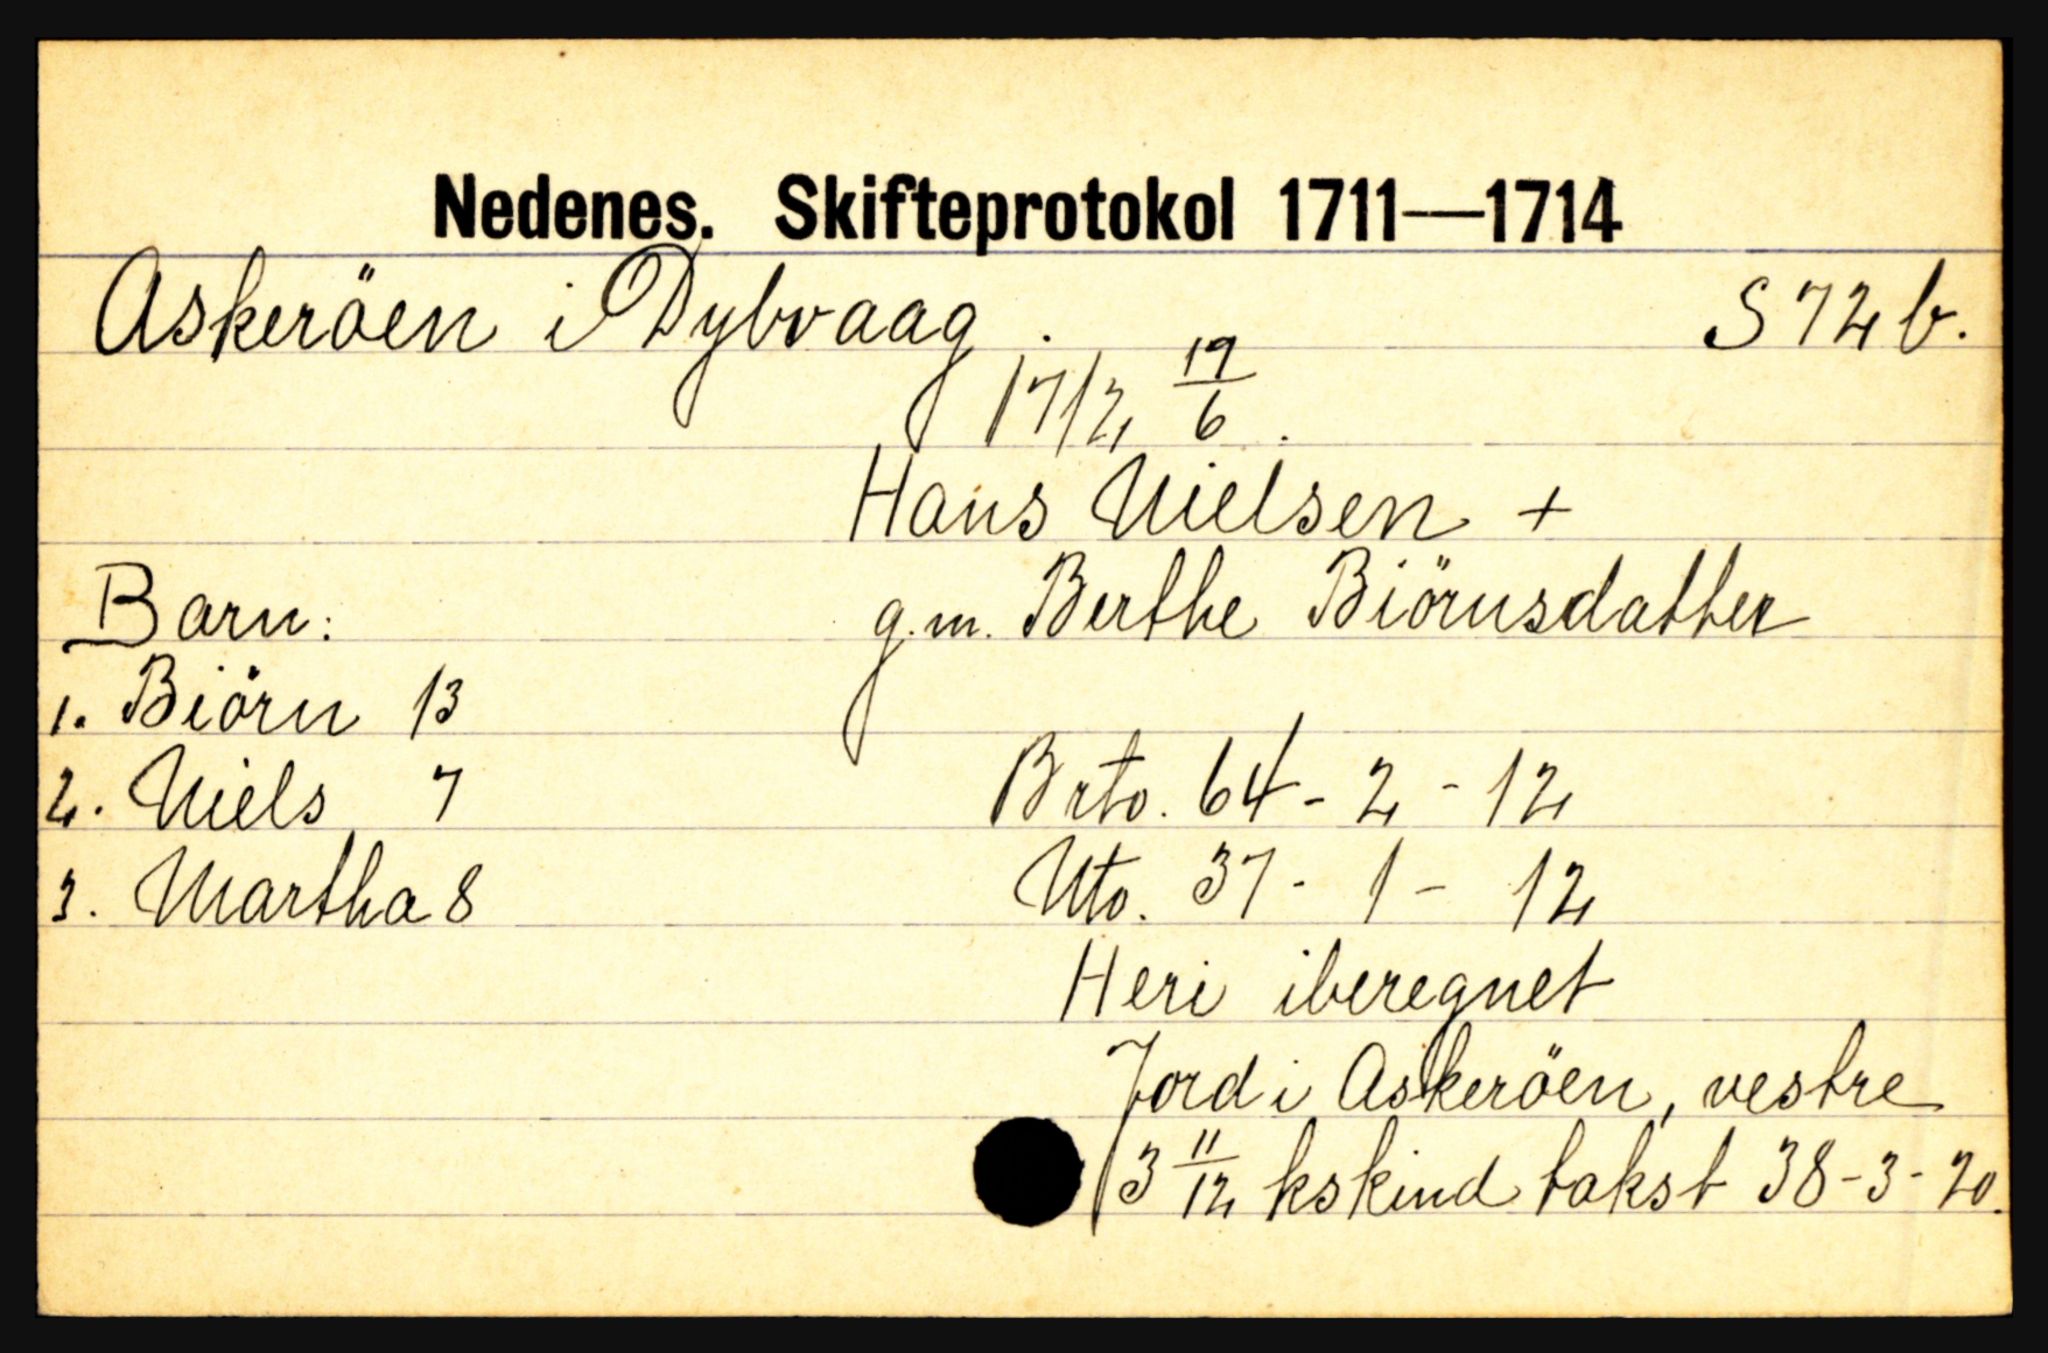 Nedenes. Skifteprotokol 1711—1714
Askeröen i Dybvaag. S 72 b.
1712 19/6.
Hans Nielsen +
Barn: g.m. Berthe Biörnsdatter
1. Biörn 13
2. Niels 7 Brto. 64 - 2 - 12
3. Martha 8 Nto. 37 - 1 - 12
Heri iberegnet
Jord i Askeröen, vestre
3 11/12 kskind takst 38 - 3 - 20.